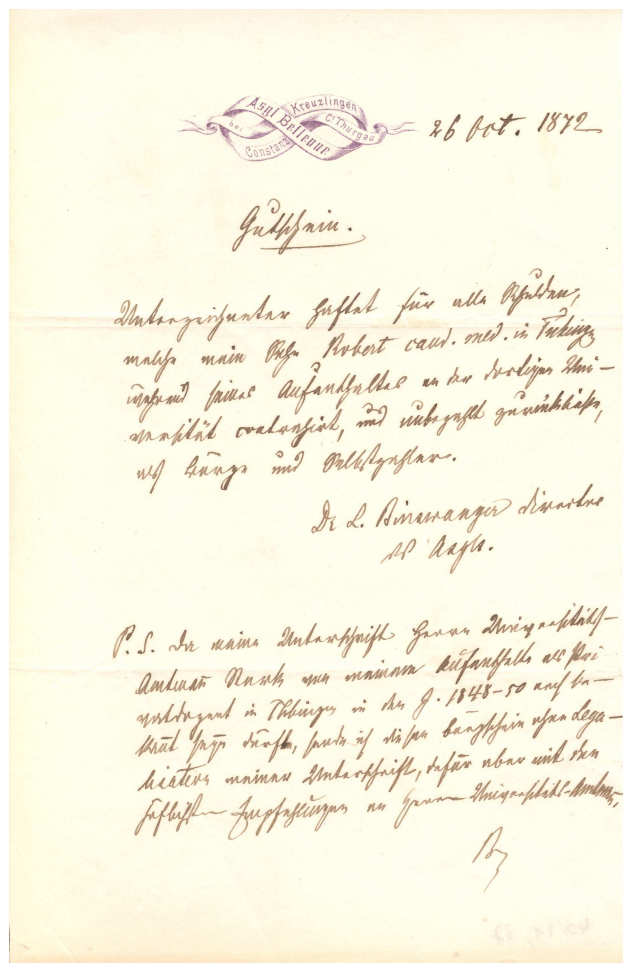 Asyl Bellevue
Kreuzlingen
Ct Thurgau
bei Constanz
26 Oct. 1872
Gutschein.
Unterzeichneter haftet für alle Schulden,
welche mein Sohn Robert cand. med. in Tübingen
während seines Aufenthaltes an der dortigen Uni-
versität contrahirt, und unbezahlt zurückließe,
als Bürge und Selbstzahler.
Dr L. Binswanger Director
des Asyls.
P. S. Da meine Unterschrift Herrn Universitäts-
Amtmann von meinem Aufenthalte als Pri
vatdozent in Tübingen in den J. 1848-50 noch be-
kannt seyn dürfte, sende ich diesen Bürgschein ohne Lega-
lisation meiner Unterschrift, dafür aber mit den
höflichsten Empfehlungen an Herrn Universitäts-Amtmann.
B